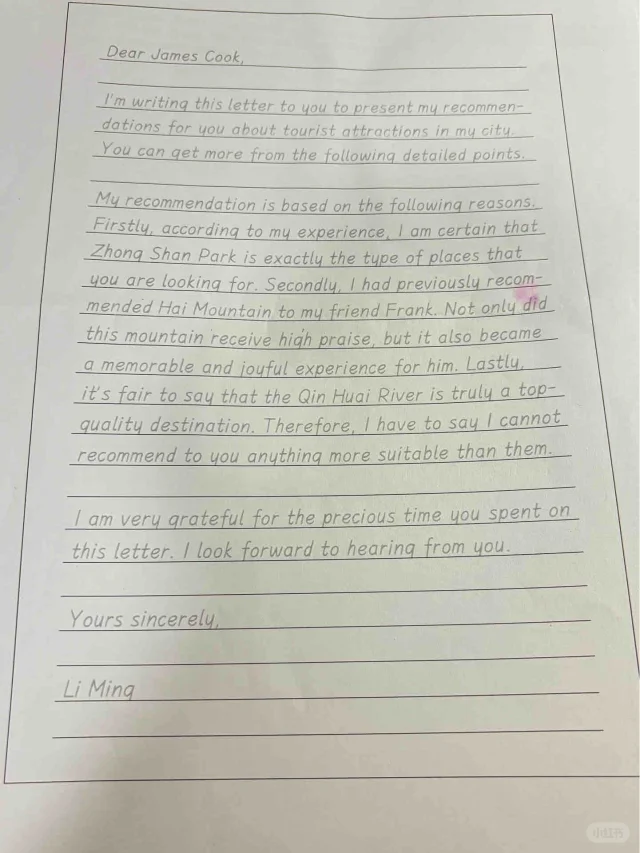 Dear James Cook,
I'm writing this letter to you to present my recommen-
dations for you about tourist attractions in my city.
You can get more from the following detailed points.
My recommendation is based on the following reasons.
Firstly, according to my experience, I am certain that
Zhong Shan Park is exactly the type of places that
you are looking for. Secondly, I had previously recom-
mended Hai Mountain to my friend Frank. Not only did
this mountain receive high praise, but it also became
a memorable and joyful experience for him. Lastly,
it's fair to say that the Qin Huai River is truly a top-
quality destination. Therefore, I have to say I cannot
recommend to you anything more suitable than them.
I am very grateful for the precious time you spent on
this letter. I look forward to hearing from you.
Yours sincerely,
Li Ming
小红书